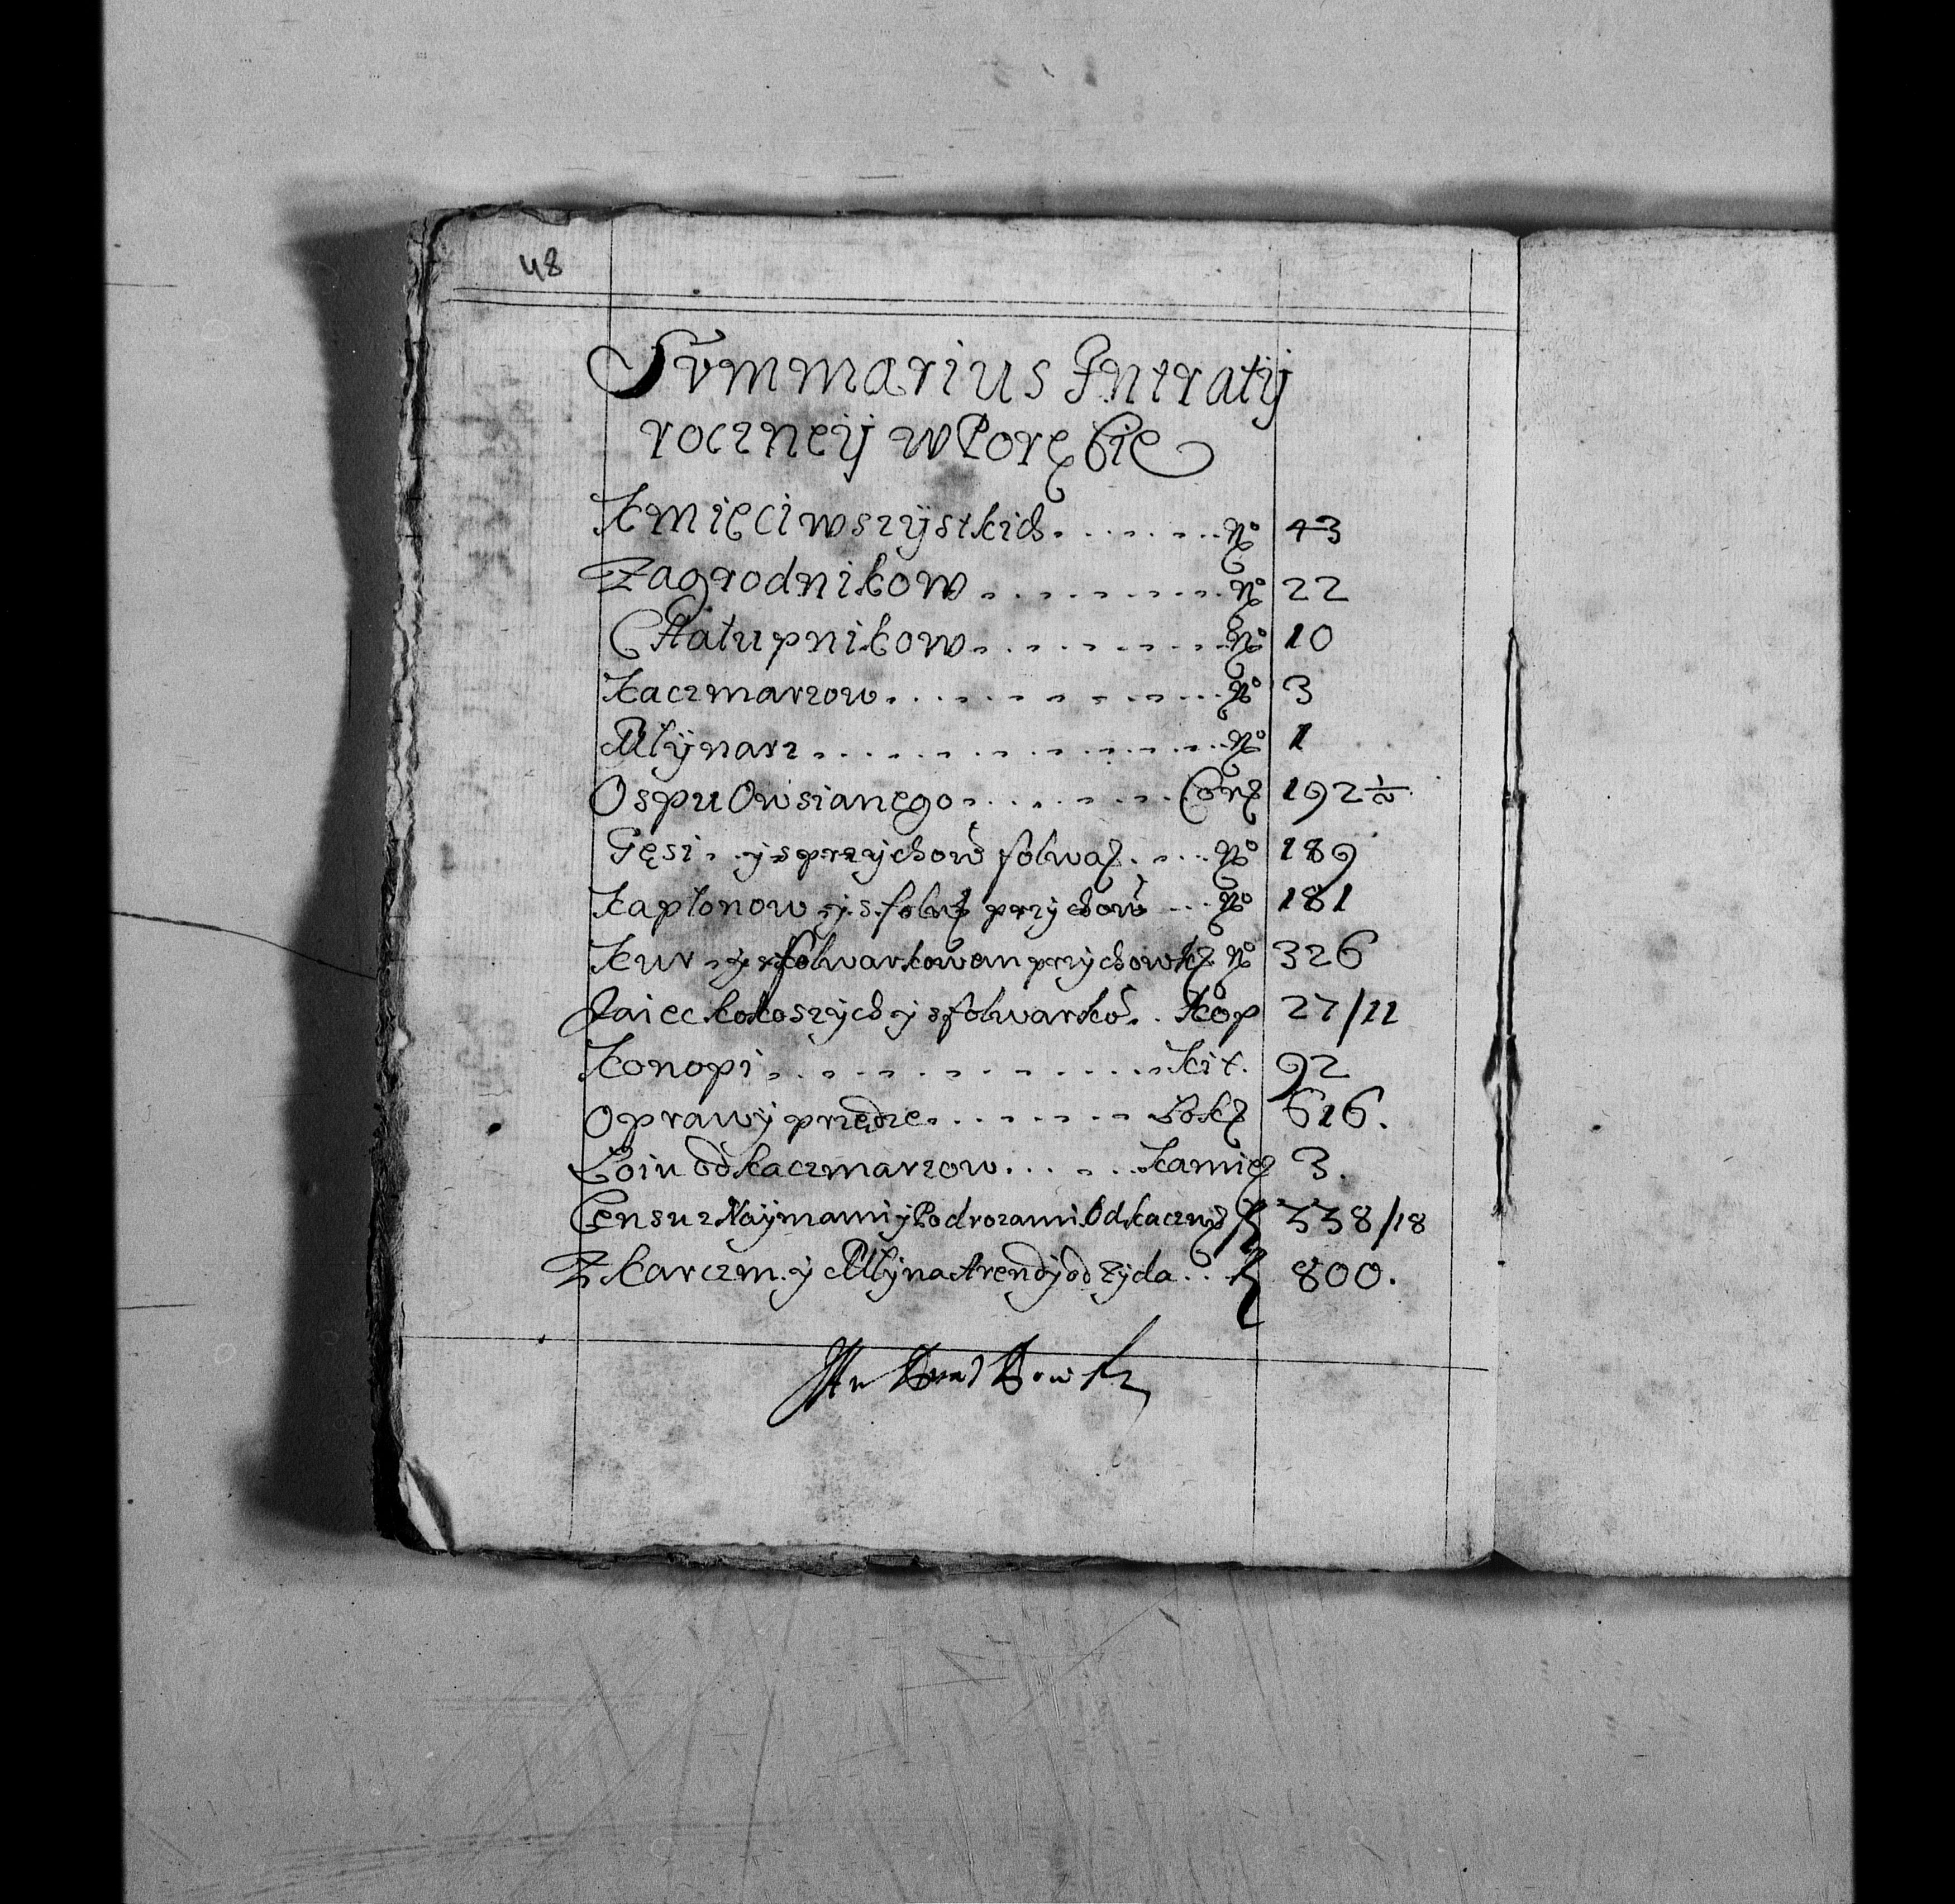 48
Summarius Intratÿ
rocznéÿ w Porębie
Kmięci wszÿstkich . . . . . . . . No 43
Zagrodnikow . . . . . . . . . No 22
Chałupnikow . . . . . . . . . No 10
Kaczmarzow . . . . . . . . . . No 3
Młÿnarz . . . . . . . . . . . No 1
Ospu Owsianego . . . . . . . . Corz 192 1/2
Gęsi . ÿ s przÿchow folwar. . . . No 189
Kapłonow ÿ s folw przÿchow . . . No 181
Kur ÿ folwarkowem przÿchowk No 326
Jaiec kokoszÿch ÿ s folwarkow . . Kop 27/11
Konopi . . . . . . . . . . . Kit. 92
Oprawÿ przędze . . . . . . . Łok 616.
Łoiu od kaczmarzow . . . . . Kamie 3.
Censu z Naÿmami ÿ Podrozami Od kaczm 338/18
Z karczm. ÿ Młÿna Arendÿ od Zÿda . . 800.